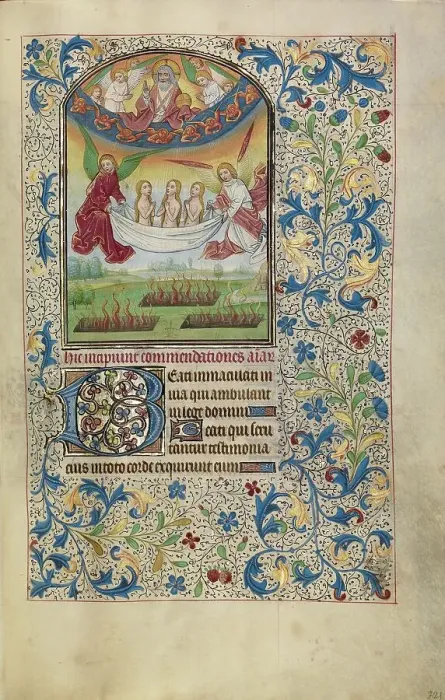 hic incipiunt commendationes aīar
Beati immaculati in
uia qui ambulant
in lege domini
Beati qui scru
tantur testimonia
eius in toto corde exquirunt eum